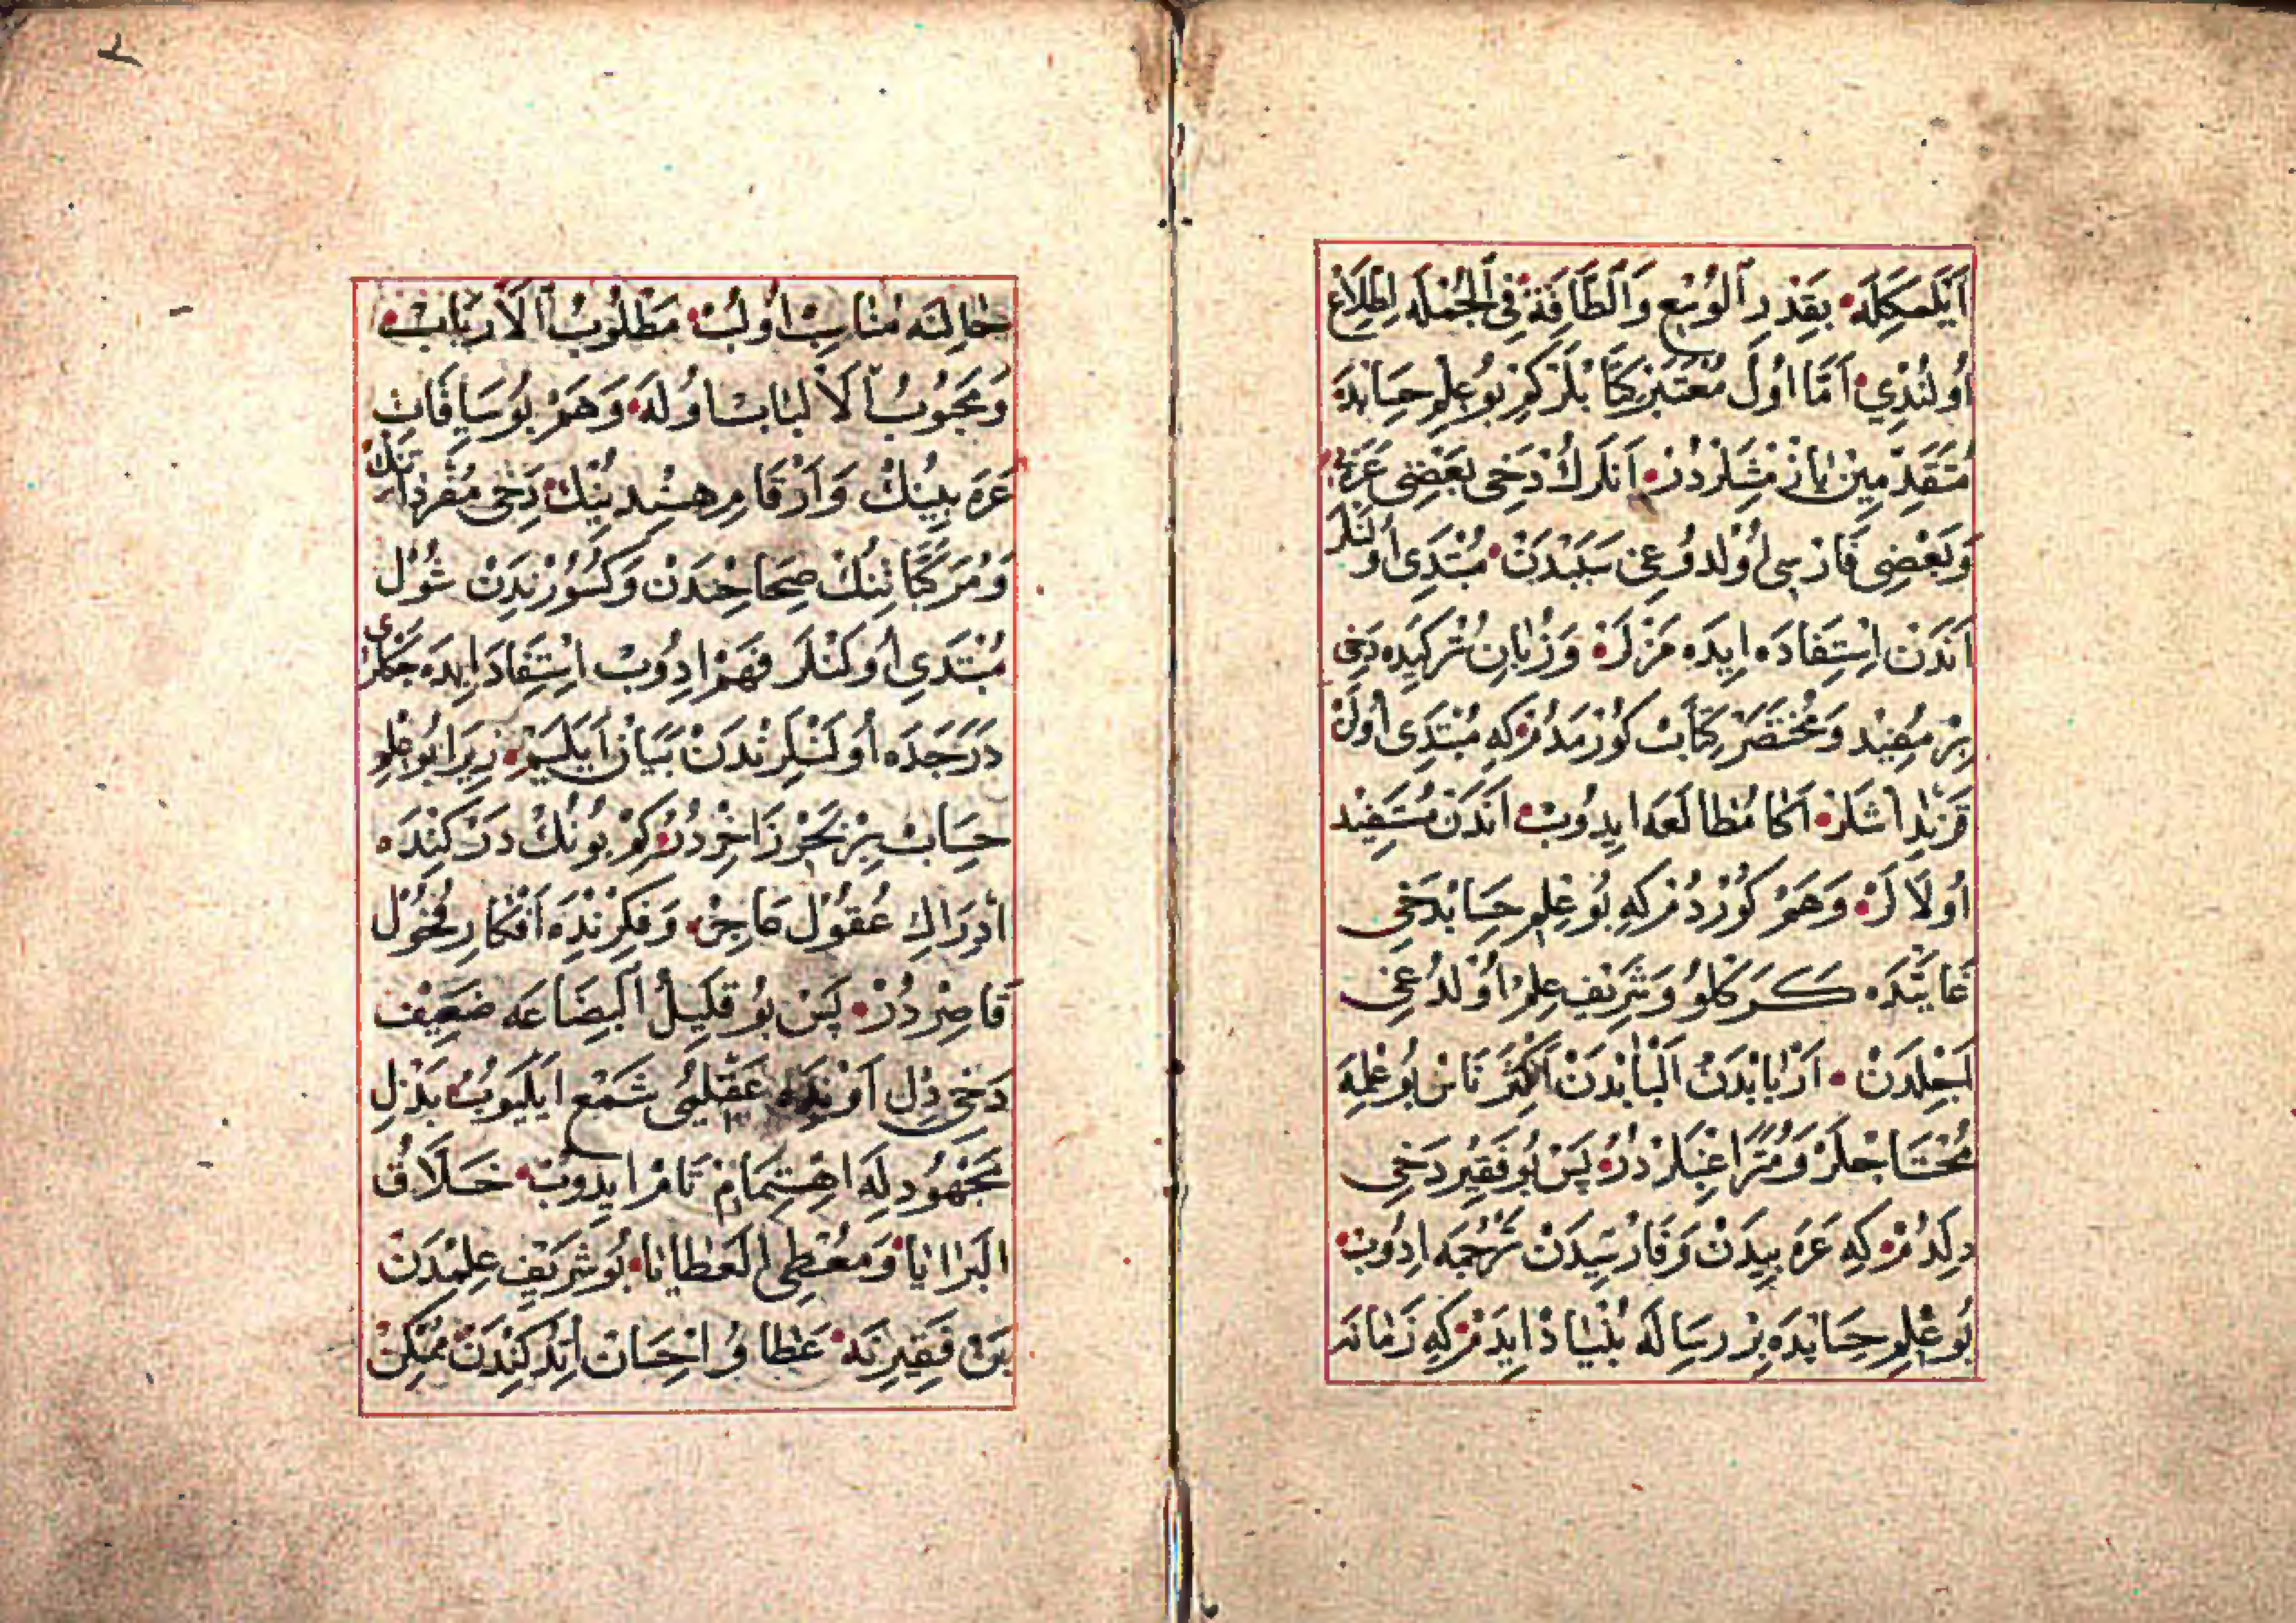 اَيْلَمَكِلَه بِقَدْرِ الْوُسْعِ وَالطَّاقَة فِي الْجُمْلَه اِطِّلَاعْ
اُولُنْدِي اَمَّا اُولْ مُعْتَبَرْ كِتَابْلَرْ كِمْ بُو عِلْمِ حِسَابْدَه
مُتَقَدِّمِينْ يَازْمِشْلَرْدُرْ اَنْلَرُكْ دَخِي بَعْضِي عَرَبِي
وَبَعْضِي فَارْسِي اُولْدُوغِي سَبَبْدَنْ مُبْتَدِي اُولَنْلَرْ
اَنْدَنْ اِسْتِفَادَه اِيدَه مَزْلَرْ وَزُبَانِ تُرْكِيدَه دَخِي
بِرْ مُفِيدْ وَمُخْتَصَرْ كِتَابْ كُورْمَدُمْ كِه مُبْتَدِي اُولَنْ
قَرِنْدَاشْلَرْ اَكَا مُطَالَعَه اِيدُوبْ اَنْدَنْ مُسْتَفِيدْ
اُولَالَرْ وَهَمْ كُورْدُمْ كِه بُو عِلْمِ حِسَابْ دَخِي
غَايَتْدَه كَرَكْلُو وَشَرِيفْ عِلْمْ اُولْدُغِي
اَجِلْدَنْ اَرْبَابْدَنْ اَلْبَابْدَنْ اَكْثَرِ نَاسْ بُو عِلْمَه
مُحْتَاجْلَرْ وَمُتَرَاغِبْلَرْدُرْ پَسْ بُو فَقِيرْ دَخِي
دِلَدُمْ كِه عَرَبِيدَنْ وَفَارْسِيدَنْ تَرْجُمَه اِدُوبْ
بُو عِلْمِ حِسَابْدَه بِرْ رِسَالَه بُنْيَادْ اِيدَمْ كِه زَمَانَه
٢
حَالِنَه مُنَاسِبْ اُولُبْ مَطْلُوبُ الْاَرْبَابْ
وَمَحْبُوبُ الْاَلْبَابْ اُولَه وَهَمْ بُو سِيَاقَاتِ
عَرَبِيُّنِنُكْ وَاَرْقَامِ هِنْدِيُّنِنُكْ دَخِي مُفْرَدَاتِنُكْ
وَمُرَكَّبَاتِنُكْ صِحَاحِنْدَنْ وَكُسُورِنْدَنْ شُولْ
مُبْتَدِي اُوكَنْلَرْ فَهْمْ اِدُوبْ اِسْتِفَادَ اِيدَه جَكْلَرِي
دَرَجَدَه اُولَنْلَرِنْدَنْ بَيَانْ اَيْلَيَمْ زِيرَا بُو عِلْمِ
حِسَابْ بِرْ بَحْرِ زَاخِرْدُرْ كِمْ بُونُكْ دَرْكِنْدَه
اِدْرَاكِ عُقُولْ عَاجِزْ وَفِكْرِنْدَه اَفْكَارِ فُحُولْ
قَاصِرْدُرْ پَسْ بُو قَلِيلُ الْبِضَاعَه ضَعِيفْ
دَخِي دِلْ اَوِنْدَه عَقْلُمِي شَمْعْ اَيْلَيُوبْ بَذْلِ
مَجْهُودِلَه اِهْتِمَامِ تَامْ اِيدُوبْ خَلَّاقُ
الْبَرَايَا وَمُعْطِي الْعَطَايَا بُو شَرِيفْ عِلِمْدَنْ
بَنْ فَقِيرِنَه عَطَا وُ اِحْسَانْ اِتْدُكِنْدَنْ مُمْكِنْ